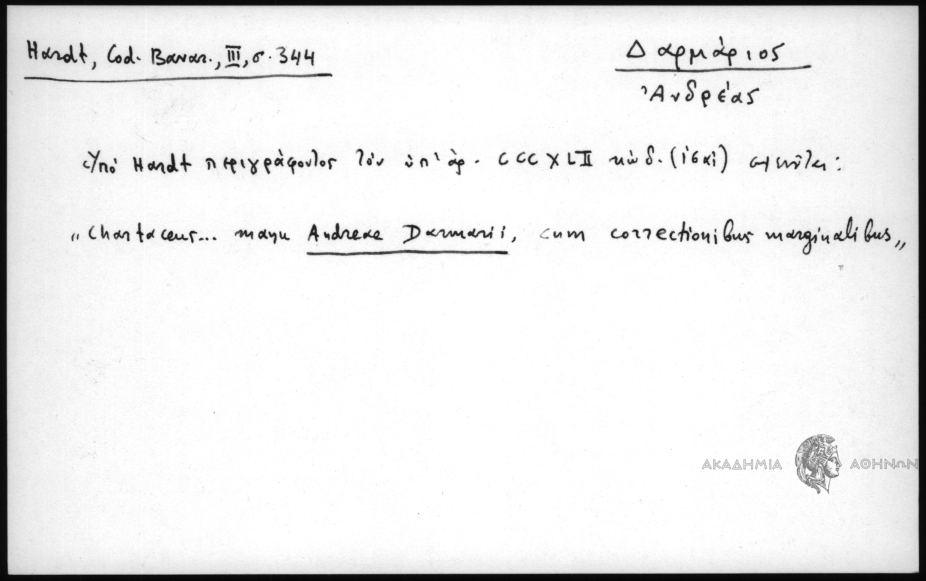 Hardt, Cod. Bavar., III, σ. 344
Δαρμάριος
Ἀνδρέας
Ὑπό Hardt περιγράφοντος τὸν ὑπ' ἀρ. CCCXLII κώδ.
„Chartaceus... manu Andreae Darmarii, cum correctionibus marginalibus„
ΑΚΑΔΗΜΙΑ ΑΘΗΝΩΝ